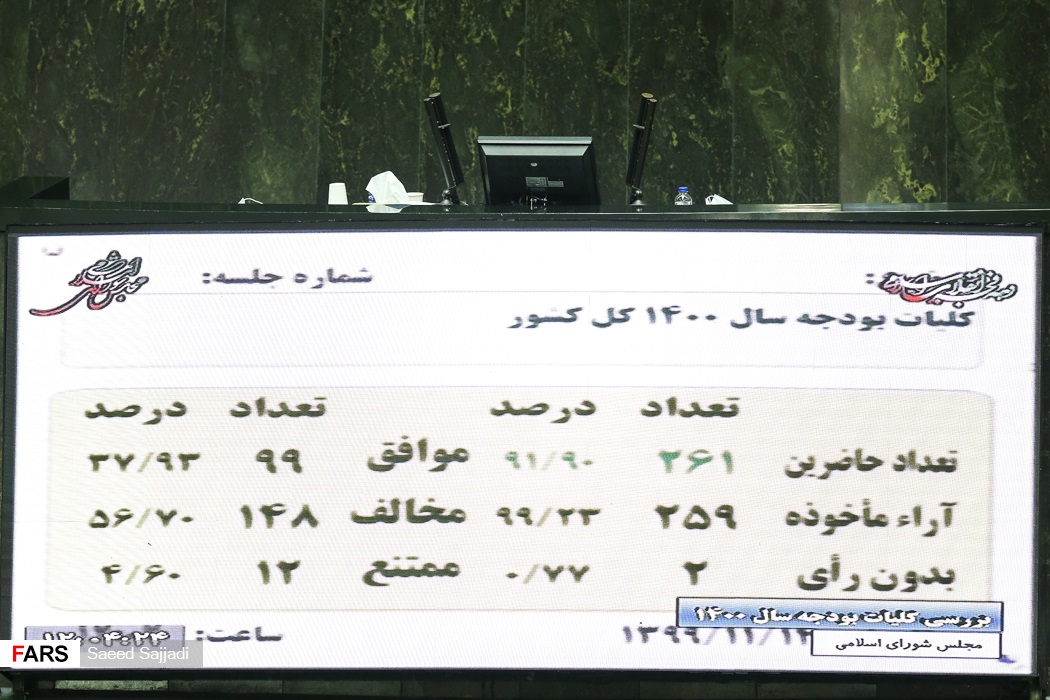 شماره جلسه:
کلیات بودجه سال ۱۴۰۰ کل کشور
تعداد درصد تعداد درصد
تعداد حاضرین ۲۶۱ ۹۱/۹۰ موافق ۹۹ ۳۷/۹۳
آراء مأخوذه ۲۵۹ ۹۹/۲۳ مخالف ۱۴۸ ۵۶/۷۰
بدون رأی ۲ ۰/۷۷ ممتنع ۱۲ ۴/۶۰
بررسی کلیات بودجه سال ۱۴۰۰
مجلس شورای اسلامی
۱۳۹۹/۱۱/۱۴ ساعت:
FARS Saeed Sajjadi